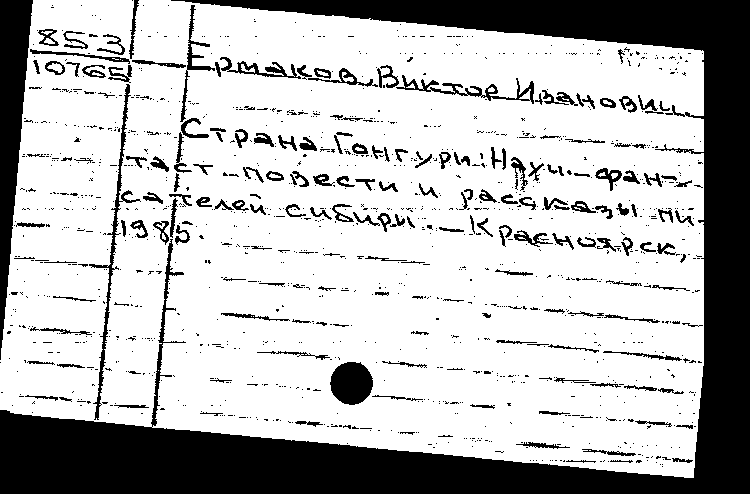 85-3
10765
Ермаков, Виктор Иванович.
Страна Гонгури: Науч.-фан-
таст. повести и рассказы пи-
сателей сибири. - Красноярск,
1985.